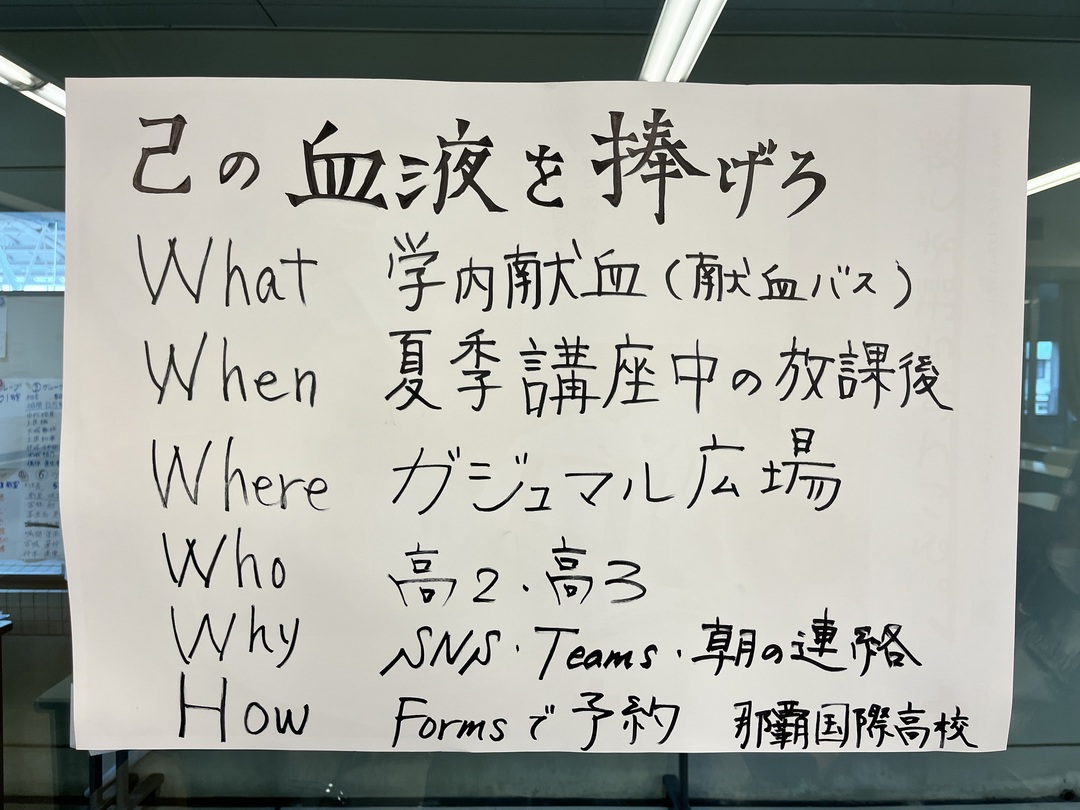 己の血液を捧げろ
What 学内献血(献血バス)
When 夏季講座中の放課後
Where ガジュマル広場
Who 高2・高3
Why SNS・Teams・朝の連絡
How Formsで予約 那覇国際高校